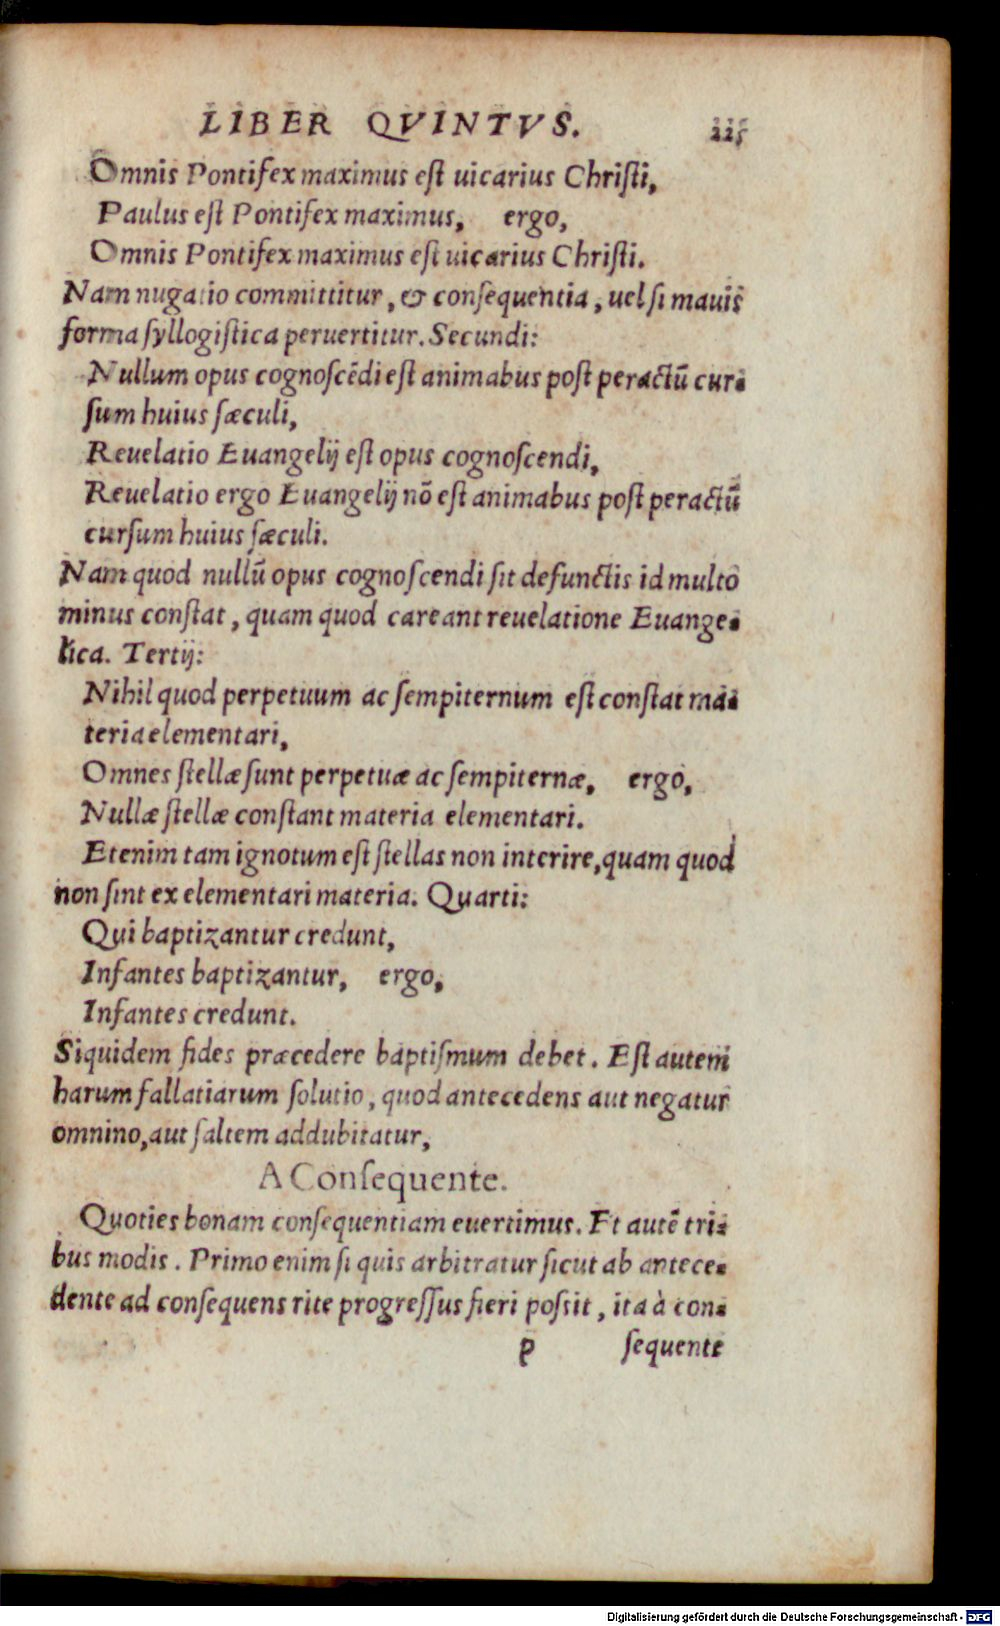 LIBER QVINTVS. 225
Omnis Pontifex maximus est uicarius Christi,
Paulus est Pontifex maximus, ergo,
Omnis Pontifex maximus est uicarius Christi.
Nam nugatio committitur, & consequentia, uel si mauis
forma syllogistica peruertitur. Secundi:
Nullum opus cognoscẽdi est animabus post peractũ cur-
sum huius sæculi,
Reuelatio Euangelij est opus cognoscendi,
Reuelatio ergo Euangelij nõ est animabus post peractũ
cursum huius sæculi.
Nam quod nullũ opus cognoscendi sit defunctis id multo
minus constat, quam quod careant reuelatione Euange-
lica. Tertij:
Nihil quod perpetuum ac sempiternum est constat ma-
teria elementari,
Omnes stellæ sunt perpetuæ ac sempiternæ, ergo,
Nullæ stellæ constant materia elementari.
Etenim tam ignotum est stellas non interire, quam quod
non sint ex elementari materia. Quarti:
Qui baptizantur credunt,
Infantes baptizantur, ergo,
Infantes credunt.
Siquidem fides præcedere baptismum debet. Est autem
harum fallatiarum solutio, quod antecedens aut negatur
omnino, aut saltem addubitatur,
A Consequente.
Quoties bonam consequentiam euertimus. Et autẽ tri-
bus modis. Primo enim si quis arbitratur sicut ab antece-
dente ad consequens rite progressus fieri possit, ita à con-
p sequente
Digitalisierung gefördert durch die Deutsche Forschungsgemeinschaft - DFG